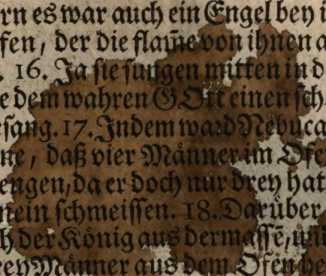 rn es war auch ein Engel bey i
fen, der die flam̃e von ihnen a
. 16. Ja sie sungen mitten in d
e dem wahren GOtt einen sch
esang. 17. Indem ward Nebuca
ne, daß vier Männer im Ofe
engen, da er doch nur drey hat
nein schmeissen. 18. Darüber
h der König aus dermasse, un
rey Männer aus dem Ofen he